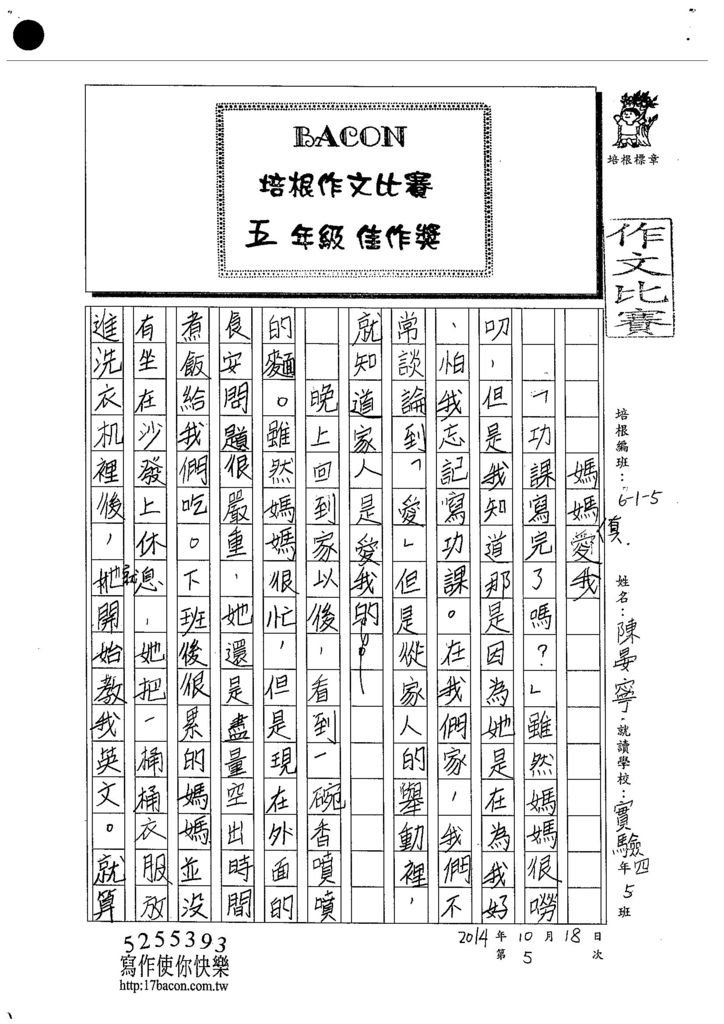 BACON
培根作文比賽
五年級佳作獎
培根標章
作文比賽
培根編班：6-1-5
姓名：陳晏寧．就讀學校：實驗四年5班
媽媽愛我
「功課寫完了嗎？」雖然媽媽很嘮
叨，但是我知道那是因為她是在為我好
，怕我忘記寫功課。在我們家，我們不
常談論到「愛」但是從家人的舉動裡，
就知道家人是愛我的。
晚上回到家以後，看到一碗香噴噴
的麵。雖然媽媽很忙，但是現在外面的
食安問題很嚴重，她還是盡量空出時間
煮飯給我們吃。下班後很累的媽媽並沒
有坐在沙發上休息，她把一桶桶衣服放
進洗衣机裡後，她就開始教我英文。就算
2014年10月18日
第5次
5255393
寫作使你快樂
http:17bacon.com.tw